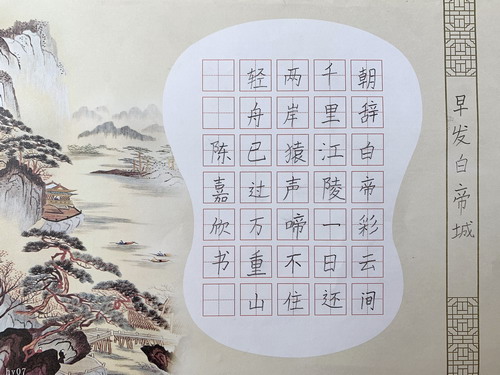 早发白帝城
朝辞白帝彩云间
千里江陵一日还
两岸猿声啼不住
轻舟已过万重山
陈嘉欣书
hy07